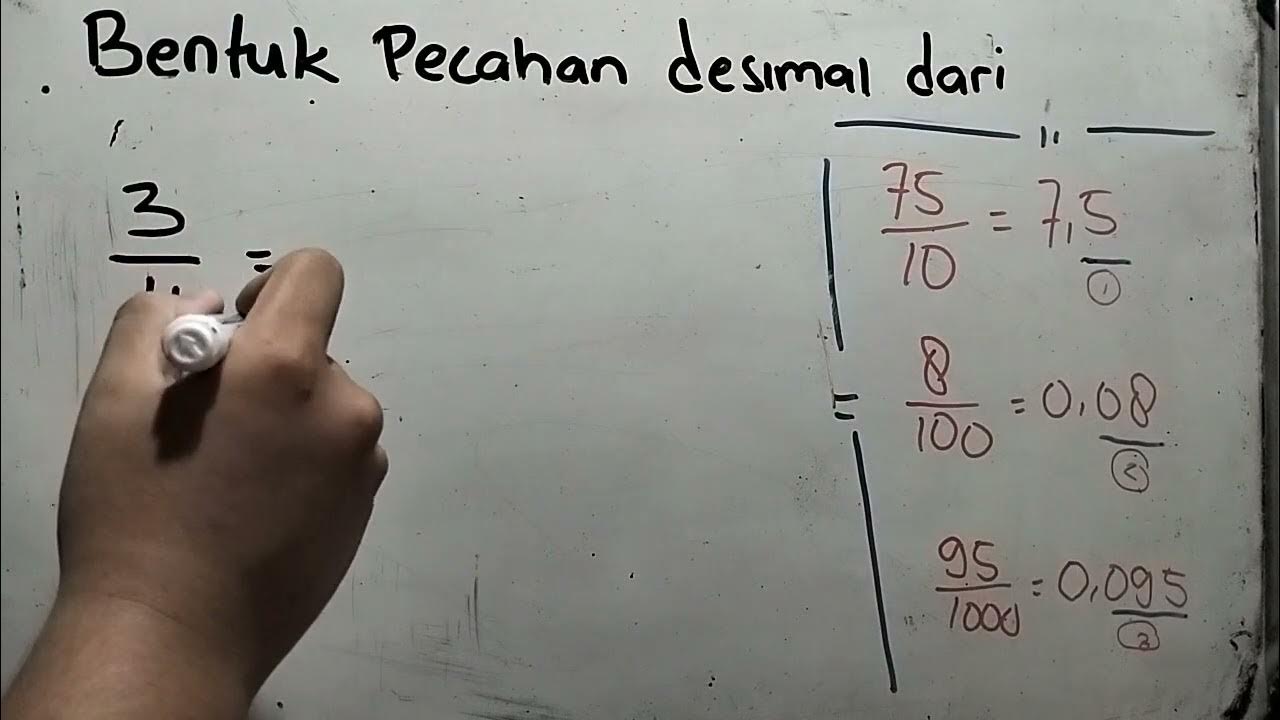 Bentuk Pecahan desimal dari
3/ =
75/10 = 7,5
1
8/100 = 0,08
2
95/1000 = 0,095
3